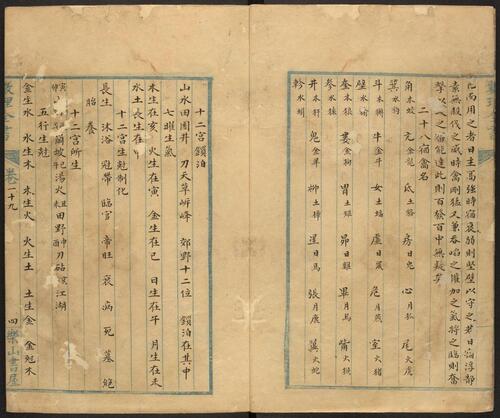 用之者日主高強時宿衰弱則堅壁以守之若日宿浮部
素無殺伐之威時禽剛猛又兼吞啗之權加之氣將之臨則奮
擊以入之宿能達此則百發百中無疑矣
二十八宿禽名
角木蛟 亢金龍 氐土貉 房日兔 心月狐 尾火虎
箕水豹
斗木獬 牛金牛 女土蝠 虛日鼠 危月燕 室火猪
壁水㺄
奎木狼 婁金狗 胃土雉 昴日雞 畢月烏 觜火猴
參水猿
井木犴 鬼金羊 柳土獐 星日馬 張月鹿 翼火蛇
軫水蚓
十二宮鎖泊
山水田園井 刀天草峰 郊野十二位 鎖泊在其中
七曜生氣
木生在亥 火生在寅 金生在巳 日生在午 月生在未
水土長生在申
十二宮生尅制化
長生 沐浴 冠帶 臨官 帝旺 衰 病 死 墓 絕
胎 養
十二宮所生
湯火 田野 刀砧 江湖
五行生尅
金生水 水生木 木生火 火生土 土生金 金尅木
卷一十九 四 樂山書屋